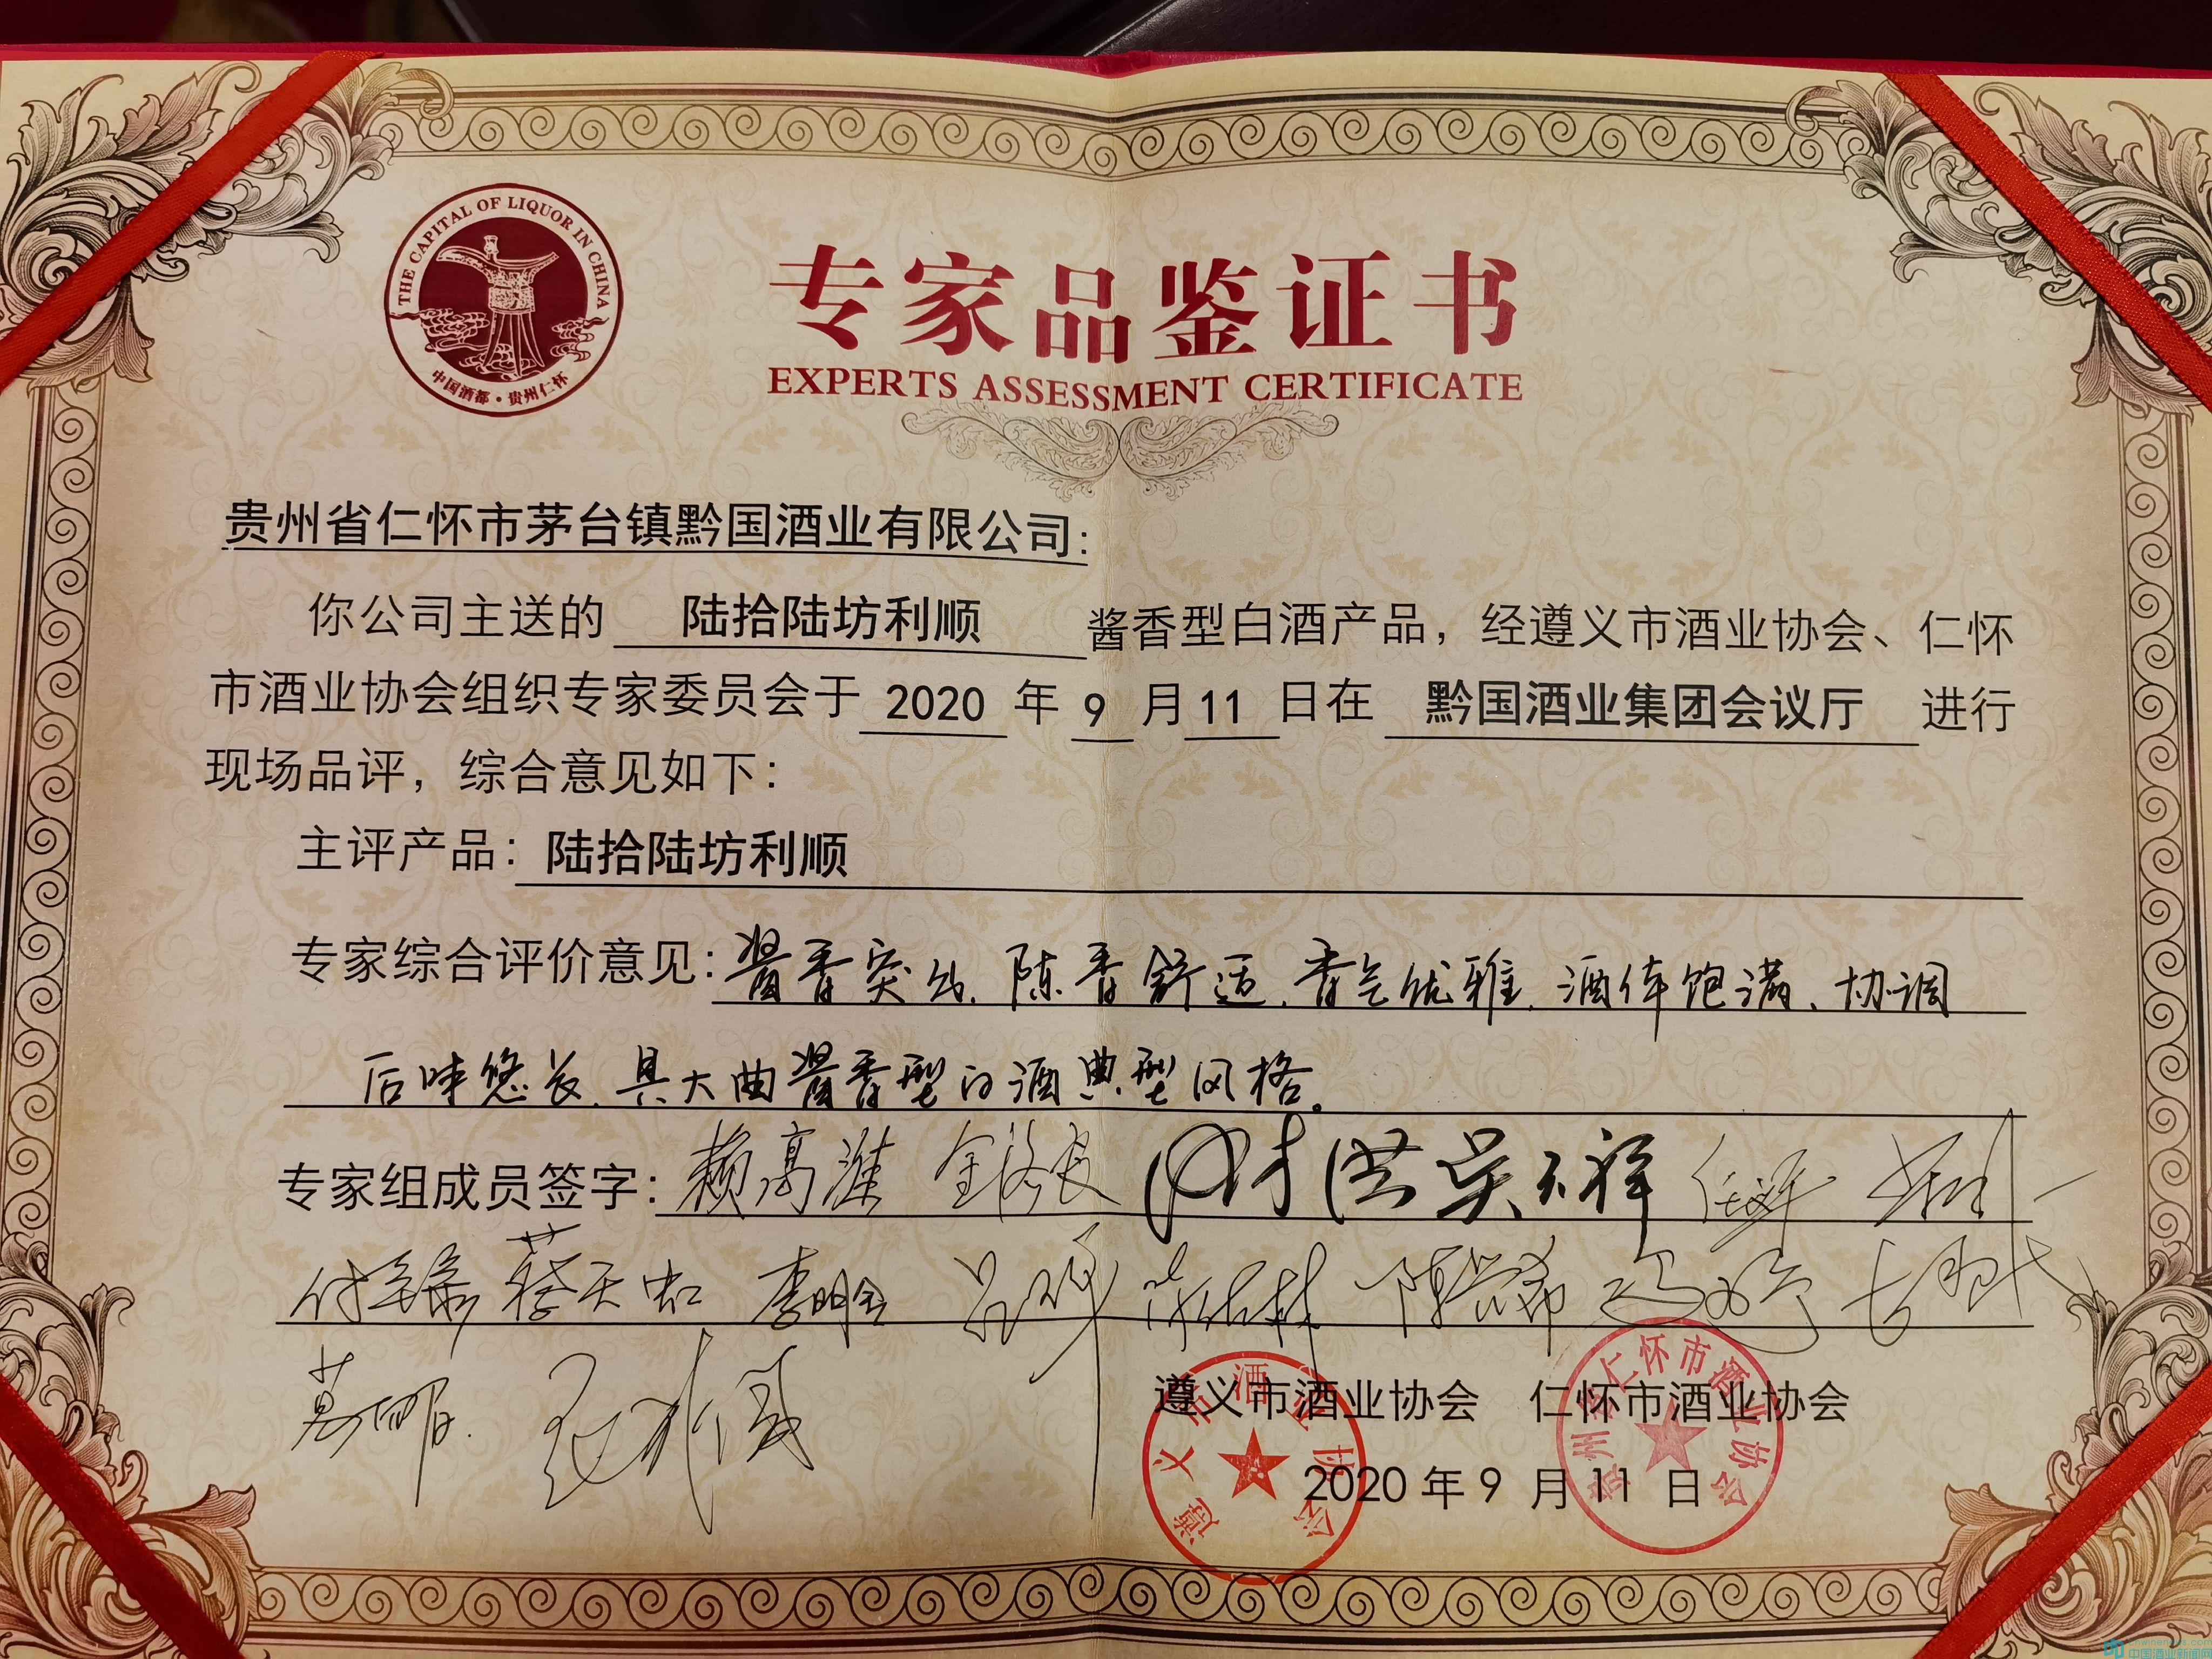 THE CAPITAL OF LIQUOR IN CHINA
中国酒都·贵州仁怀
专家品鉴证书
EXPERTS ASSESSMENT CERTIFICATE
贵州省仁怀市茅台镇黔国酒业有限公司:
你公司主送的 陆拾陆坊利顺 酱香型白酒产品，经遵义市酒业协会、仁怀
市酒业协会组织专家委员会于 2020 年 9 月 11 日在 黔国酒业集团会议厅 进行
现场品评，综合意见如下:
主评产品: 陆拾陆坊利顺
专家综合评价意见: 酱香突出、陈香舒适、香气优雅、酒体饱满、协调
后味悠长、具大曲酱香型白酒典型风格。
专家组成员签字: 赖高淮 吴天祥
蔡天虹 李明全
遵义市酒业协会 仁怀市酒业协会
2020 年 9 月 11 日
遵义市酒业协会
贵州省仁怀市酒业协会
中国酒业新闻网